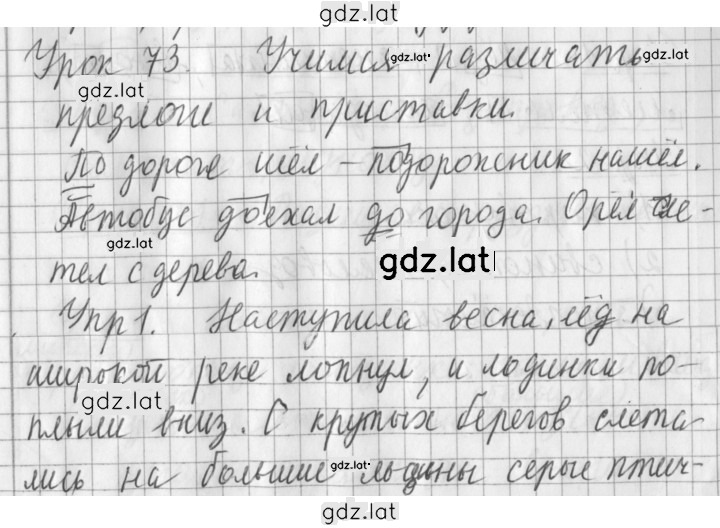 gdz.lat
Урок 73. Учимся gdz.lat различать
gdz.lat
предлоги и приставки.
По дороге шёл – подорожник нашёл.
Автобус доехал до города. Орёл сле-
gdz.lat
тел с дерева. gdz.lat
Упр 1. Наступила весна, лёд на
широкой реке лопнул, и льдинки по-
gdz.lat
плыли вниз. С крутых берегов слета-
лись на большие gdz.lat льдины серые птич-
gdz.lat